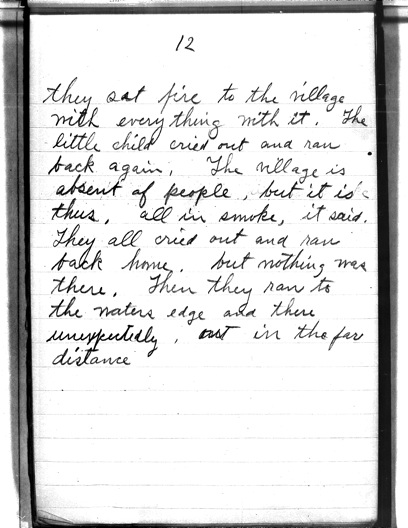 12
they sat fire to the village
with everything with it. The
little child cried out and ran
back again. The village is
absent of people, but it is
thus, all in smoke, it said.
They all cried out and ran
back home. but nothing was
there. Then they ran to
the waters edge and there
unexpectedly, out in the far
distance